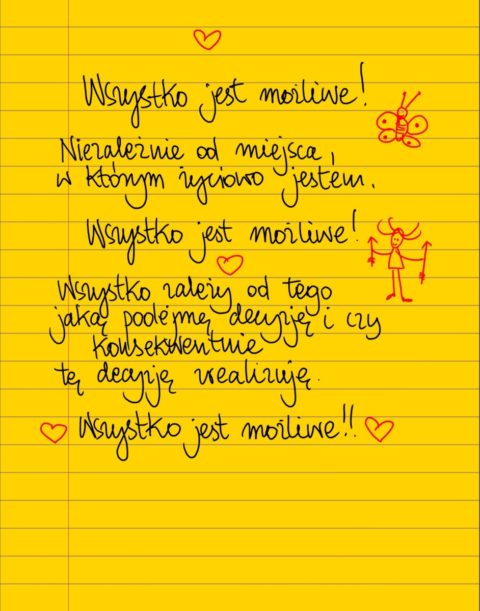 Wszystko jest możliwe!
Niezależnie od miejsca,
w którym życiowo jestem.
Wszystko jest możliwe!
Wszystko zależy od tego
jaką podejmę decyzję i czy
konsekwentnie
tę decyzję zrealizuję.
Wszystko jest możliwe!!